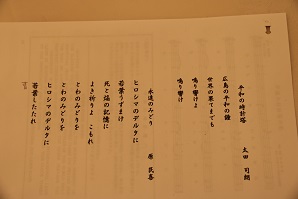 平和の時計塔　太田 司朗
広島の平和の鐘
世界の果てまでも
鳴り響けよ
鳴り響け
永遠のみどり　原 民喜
ヒロシマのデルタに
若葉うずまけ
死と焔の記憶に
よき祈りよ こもれ
とわのみどりを
とわのみどりを
ヒロシマのデルタに
若葉したたれ